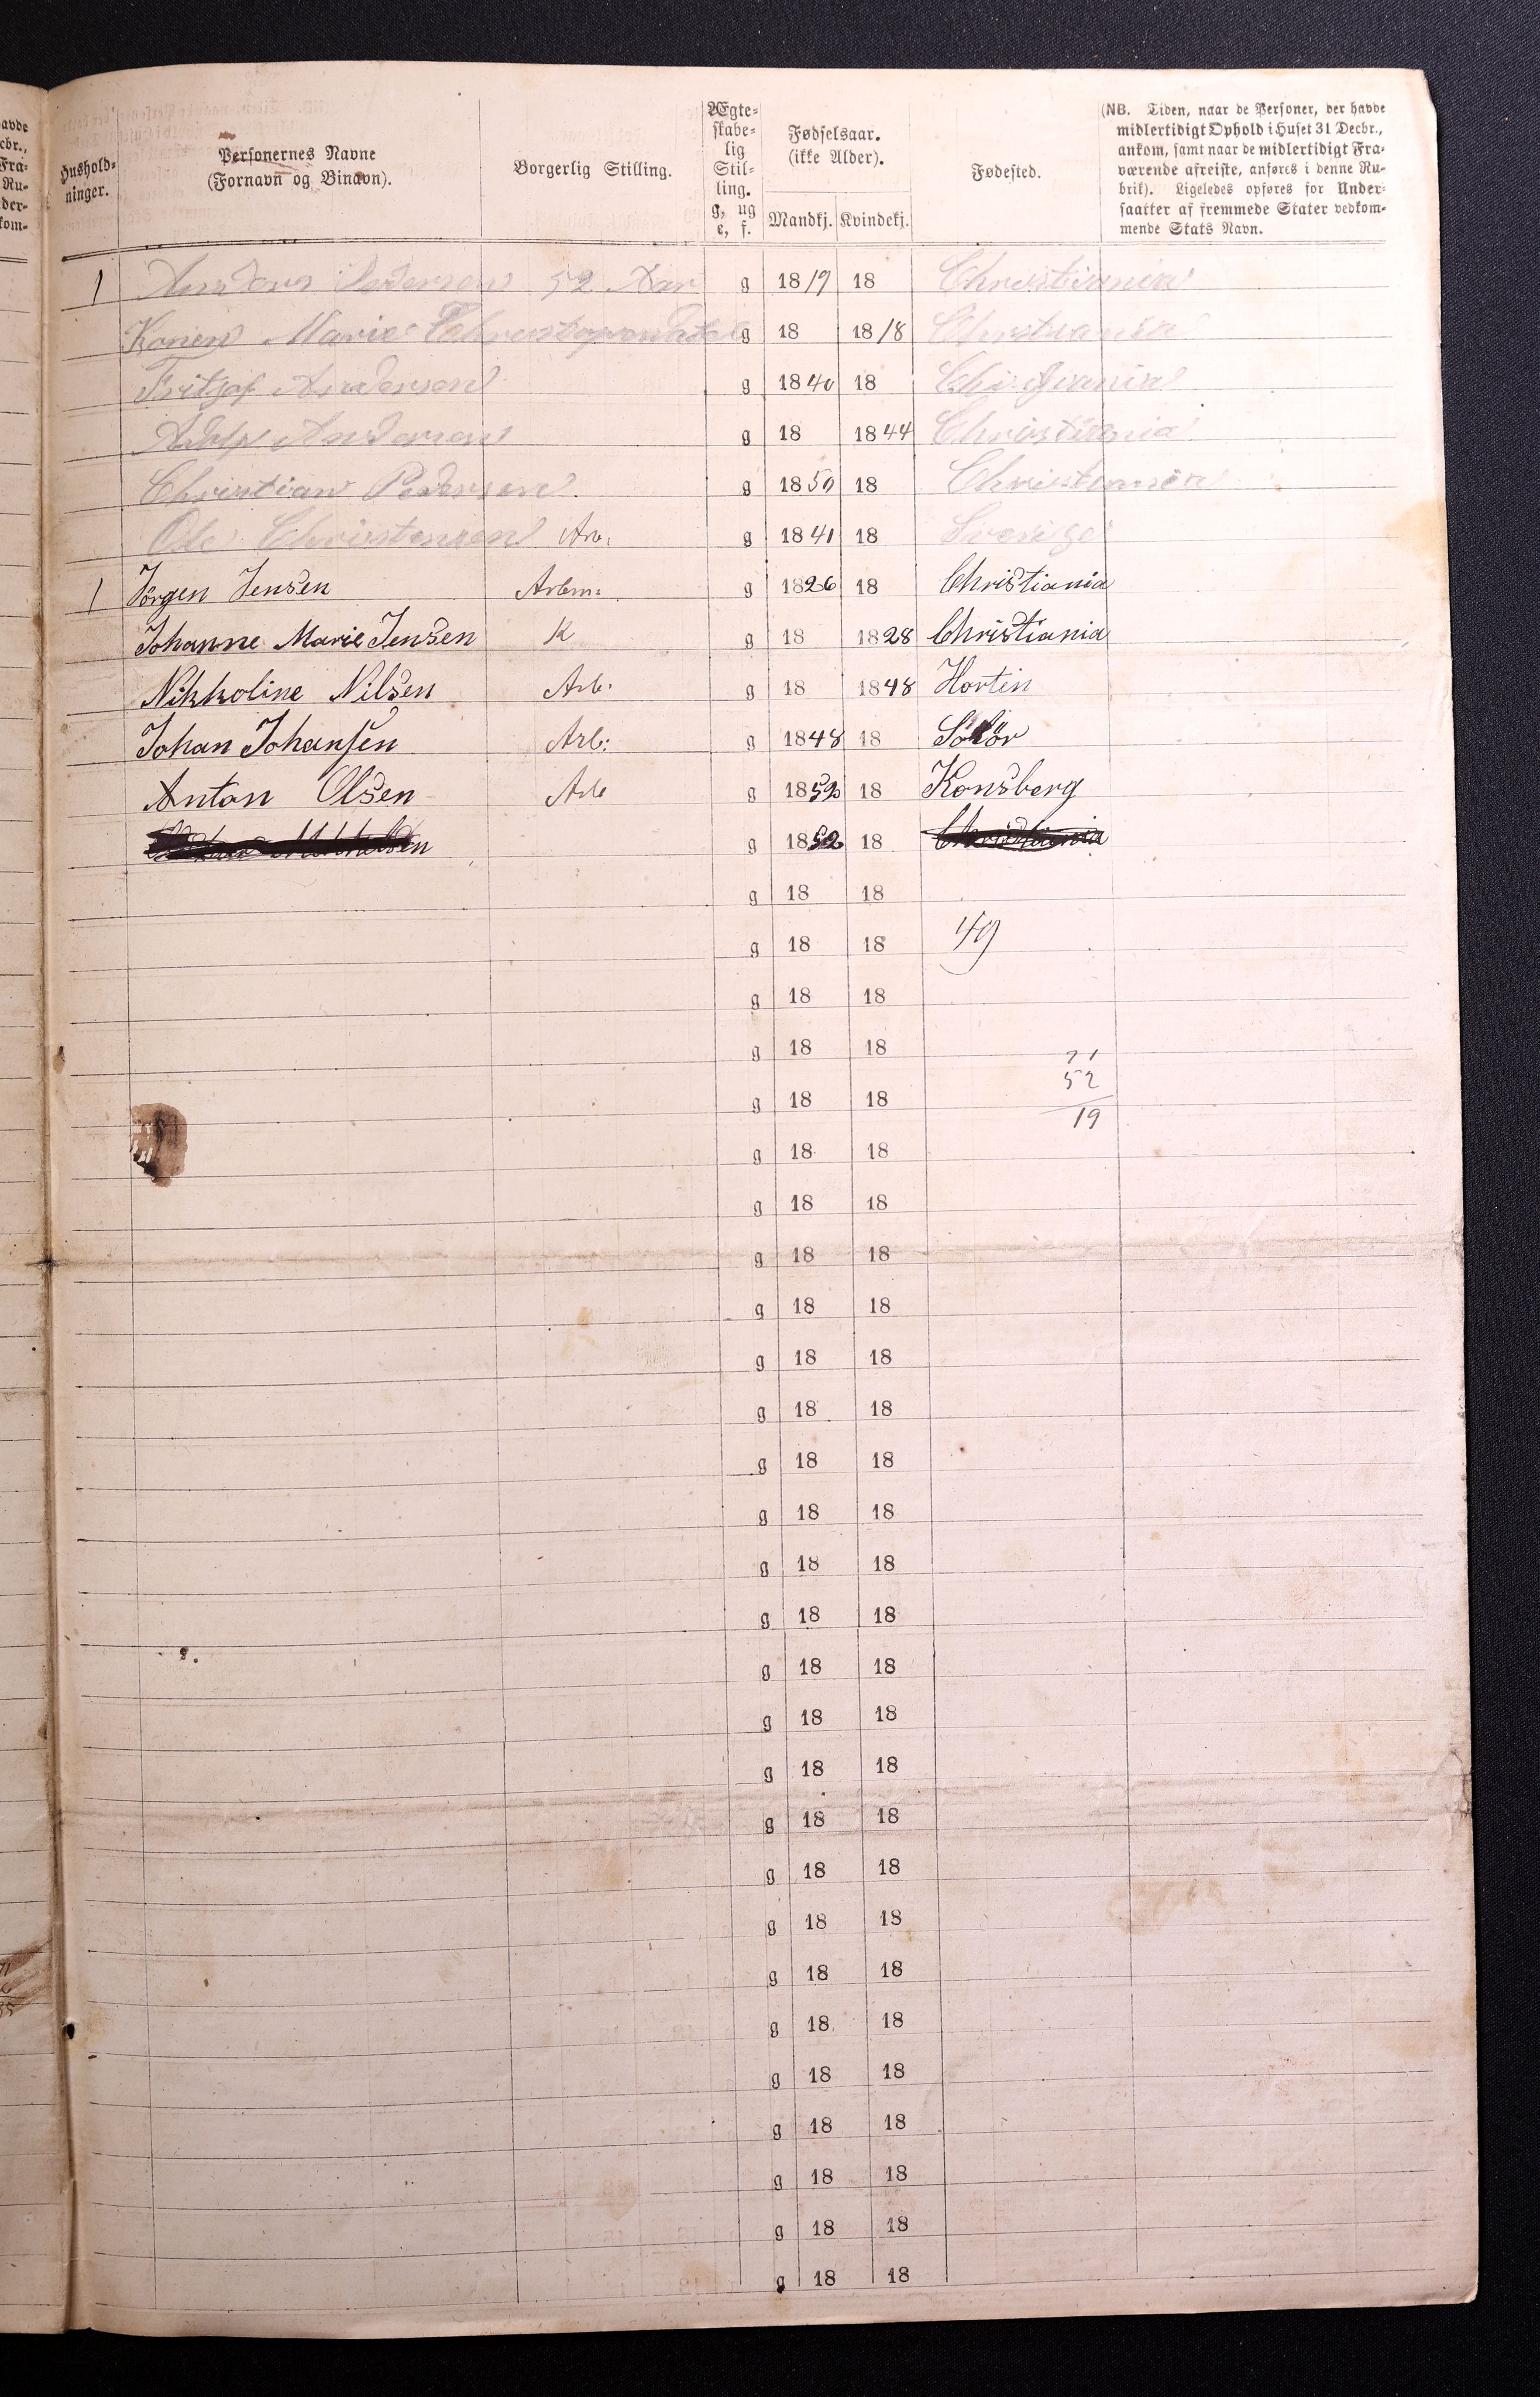 Hushold-
ninger.
Personernes Navne
(Fornavn og Binavn).
Borgerlig Stilling.
Ægte-
skabe-
lig
Stil-
ling.
g, ug
e, f.
Fødselsaar.
(ikke Alder).
Mandkj. Kvindekj.
Fødested.
(NB. Tiden, naar de Personer, der havde
midlertidigt Ophold i Huset 31 Decbr.,
ankom, samt naar de midlertidigt Fra-
værende afreiste, anføres i denne Ru-
brik). Ligeledes opføres for Under-
saatter af fremmede Stater vedkom-
mende Stats Navn.
1 Anders Pedersen 52 Aar g 1819 18 Christiania
Konen Marie g 18 1818 Christiania
Fritzof Andersen g 1840 18 Christiania
Andersen g 18 1844 Christiania
Christian Pedersen g 1850 18 Christiania
Ole Christensen Arb. g 1841 18 Sverige
1 Jörgen Jensen Arbm: g 1826 18 Christiania
Johanne Marie Jensen K g 18 1828 Christiania
Nikkoline Nilsen Arb. g 18 1848 Hortin
Johan Johansen Arb: g 1848 18 Solör
Anton Olsen Arb g 1852 18 Konsberg
g 1852 18 Christiania
g 18 18
g 18 18 49
g 18 18
g 18 18 71
g 18 18 52
19
g 18 18
g 18 18
g 18 18
g 18 18
g 18 18
g 18 18
g 18 18
g 18 18
g 18 18
g 18 18
g 18 18
g 18 18
g 18 18
g 18 18
g 18 18
g 18 18
g 18 18
g 18 18
g 18 18
g 18 18
g 18 18
g 18 18
g 18 18